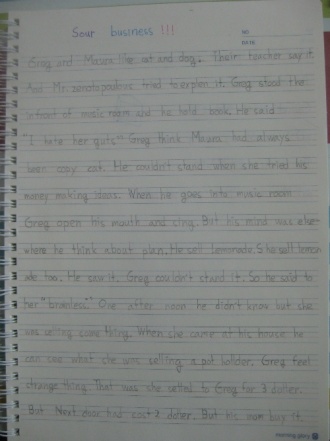 Sour business !!!
NO
DATE
Greg and Maura like cat and dog. Their teacher say it.
And Mr. zenotopoulous tried to explen it. Greg stood the
infront of music room and he hold book. He said
"I hate her guts" Greg think Maura had always
been copy cat. He couldn't stand when she tried his
money making ideas. When he goes into music room
Greg open his mouth and sing. But his mind was else-
where he think about plan. He sell lemonade. She sell lemon
ade too. He saw it. Greg couldn't stand it. So he said to
her "brainless." One after noon he didn't know but she
was selling some thing. When she came at his house he
can see what she was selling a pot holder. Greg feel
strange thing. That was she selled to Greg for 3 doller.
But Next door had cost 2 doller. But his mom buy it.